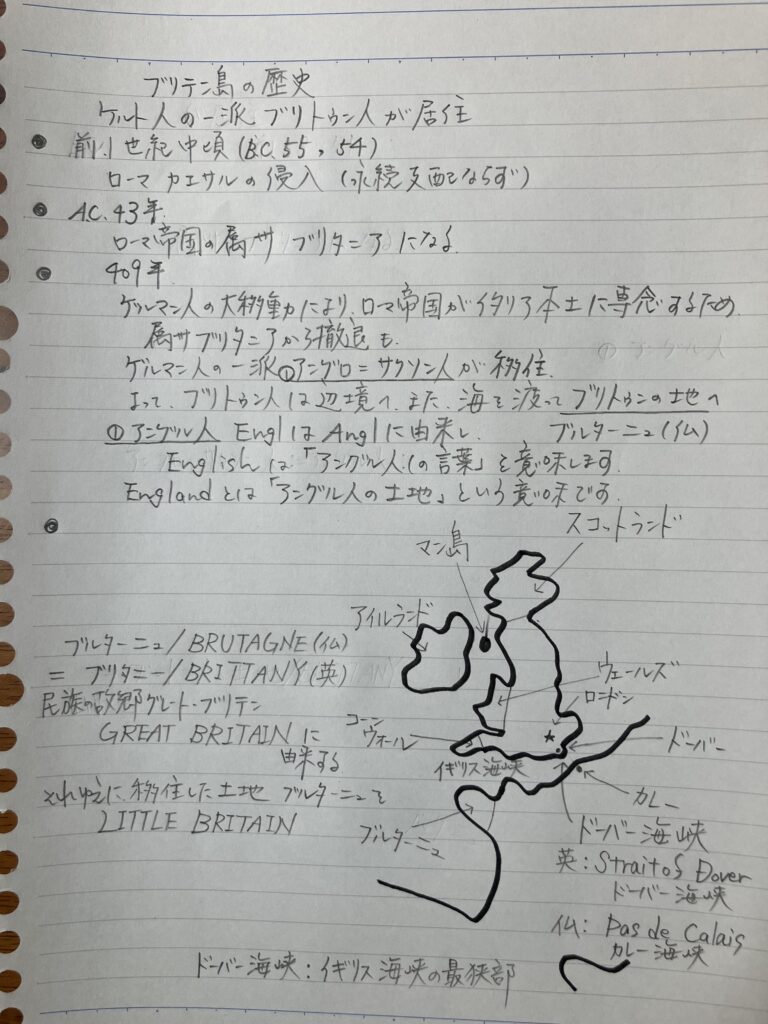 ブリテン島の歴史
ケルト人の一派 ブリトゥン人が居住
前1世紀中頃(B.C.55,54)
ローマ カエサルの侵入(永続支配ならず)
A.C.43年
ローマ帝国の属州 ブリタニアになる
409年
ゲルマン人の大移動により、ローマ帝国がイタリア本土に専念するため
属州ブリタニアから撤退も、
ゲルマン人の一派①アングロ=サクソン人が移住
よって、ブリトゥン人は辺境へ、また、海を渡ってブリトゥンの土地へ
①アングル人 EnglはAnglに由来し、 ブルターニュ(仏)
Englishは「アングル人(の言葉)」を意味します
Englandとは「アングル人の土地」という意味です
スコットランド
マン島
アイルランド
ブルターニュ/BRUTAGNE(仏)
=ブリタニー/BRITTANY(英)
ウェールズ
ロンドン
民族の故郷グレート・ブリテン
GREAT BRITAINに
由来する
コーン
ウォール
ドーバー
イギリス海峡
それゆえに、移住した土地 ブルターニュを
LITTLE BRITAIN
カレー
ブルターニュ
ドーバー海峡
英:Strait of Dover
ドーバー海峡
仏:Pas de Calais
カレー海峡
ドーバー海峡:イギリス海峡の最狭部